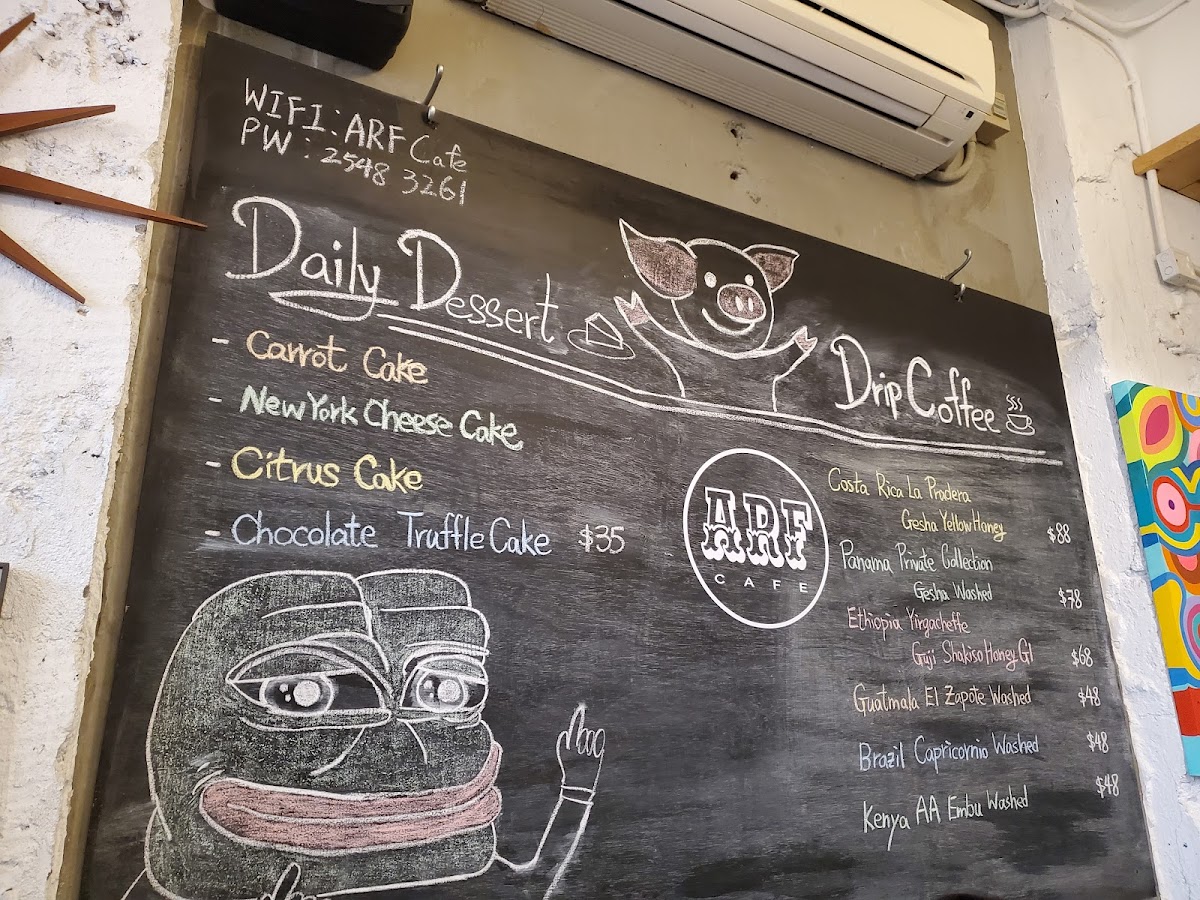 WIFI: ARF Cafe
PW: 2548 3261
Daily Dessert
- Carrot Cake
- New York Cheese Cake
- Citrus Cake
- Chocolate Truffle Cake $35
ARF
CAFE
Drip Coffee
Costa Rica La Pradera
Gesha Yellow Honey $88
Panama Private Collection
Gesha Washed $78
Ethiopia Yirgacheffe
Guji Shakiso Honey G1 $68
Guatmala El Zapote Washed $48
Brazil Capricornio Washed $48
Kenya AA Embu Washed $48